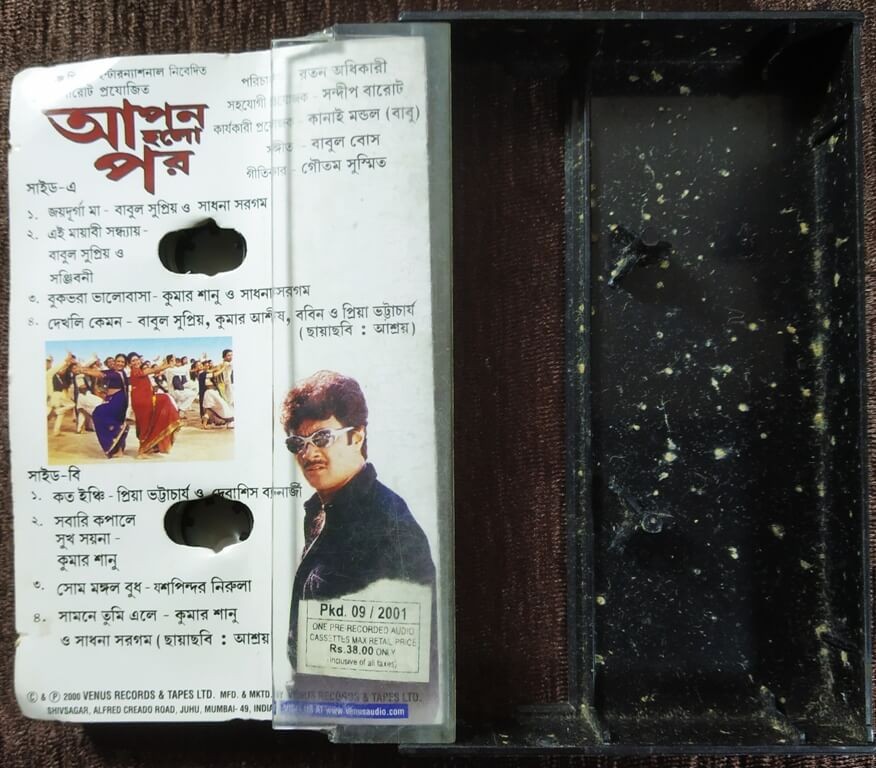 ন্টারন্যাশনাল নিবেদিত
রোট প্রযোজিত
আপন
হলো
পর
রতন অধিকারী
সহযোগী - সন্দীপ বারোট
কার্যকারী - কানাই মন্ডল (বাবু)
- বাবুল বোস
গীতিকার - গৌতম সুস্মিত
সাইড-এ
১. জয়দূর্গা মা - বাবুল সুপ্রিয় ও সাধনা সরগম
২. এই মায়াবী সন্ধ্যায়-
বাবুল সুপ্রিয় ও
সঞ্জিবনী
৩. বুকভরা ভালোবাসা - কুমার শানু ও সাধনা সরগম
৪. দেখলি কেমন - বাবুল সুপ্রিয়, কুমার আশীষ, ববিন ও প্রিয়া ভট্টাচার্য
(ছায়াছবি : আশ্রয়)
সাইড-বি
১. কত ইঞ্চি - প্রিয়া ভট্টাচার্য ও দেবাশিস ব্যানার্জী
২. সবারি কপালে
সুখ সয়না -
কুমার শানু
৩. সোম মঙ্গল বুধ - যশপিন্দর নিরুলা
৪. সামনে তুমি এলে - কুমার শানু
ও সাধনা সরগম (ছায়াছবি : আশ্রয়
Pkd. 09 / 2001
ONE PRE-RECORDED AUDIO
CASSETTES MAX RETAIL PRICE
Rs.38.00 ONLY
(inclusive of all taxes)
© & ℗ 2000 VENUS RECORDS & TAPES LTD. MFD. & MKTD. BY VENUS RECORDS & TAPES LTD.
SHIVSAGAR, ALFRED CREADO ROAD, JUHU, MUMBAI- 49, INDIA
www.venusaudio.com